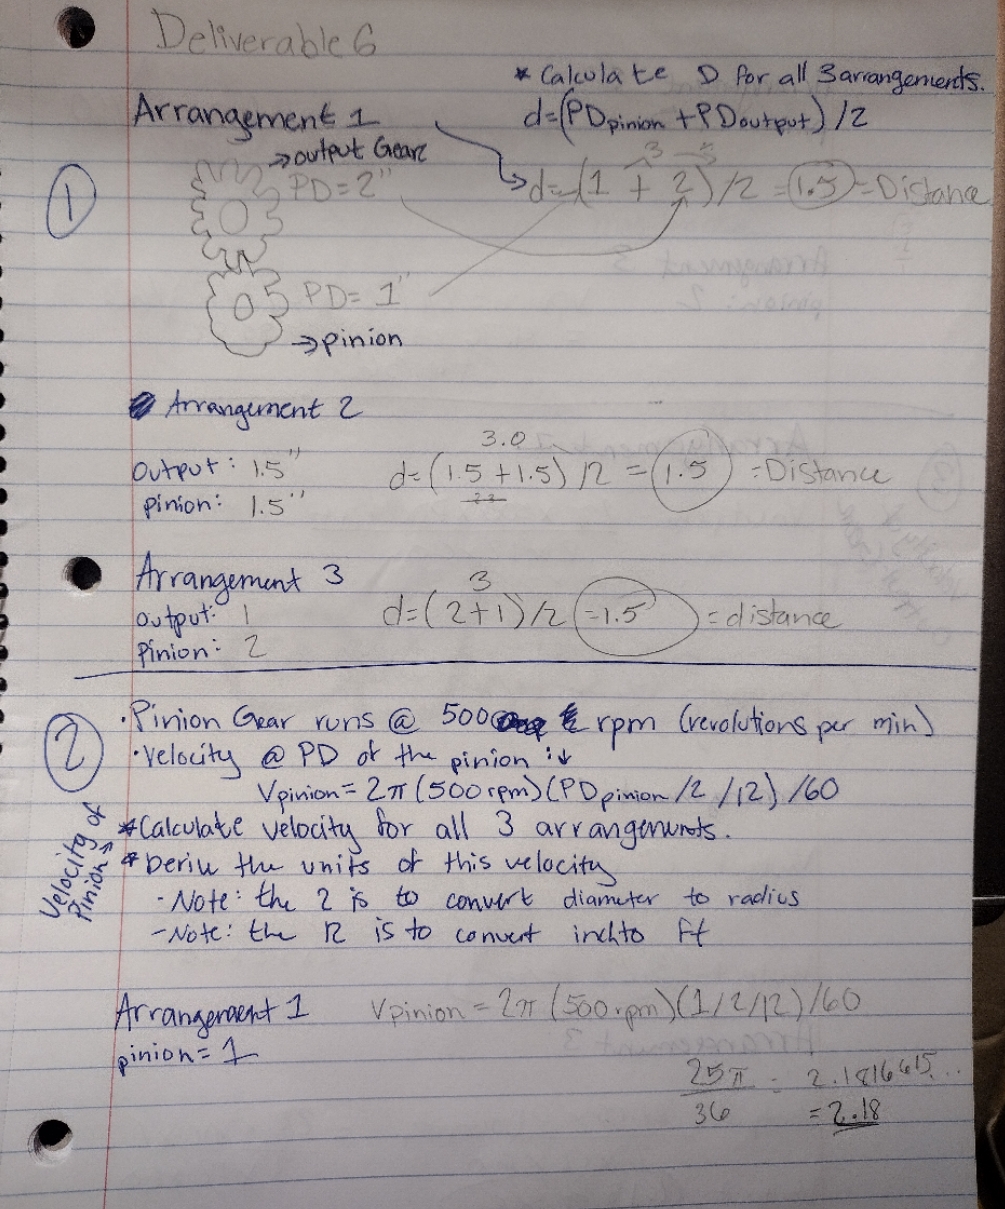 Deliverable 6
* Calculate D for all 3 arrangements.
Arrangement 1
d=(PDpinion + PDoutput)/2
→output Gear
3
① PD=2"
d=(1 + 2)/2 = 1.5 = Distance
PD= 1"
→pinion
Arrangement 2
3.0
output: 1.5"
d=(1.5+1.5)/2 = 1.5 = Distance
pinion: 1.5"
Arrangement 3
3
output: 1
d=(2+1)/2 =1.5 = distance
Pinion: 2
② ·Pinion Gear runs @ 500 rpm (revolutions per min)
·Velocity @ PD of the pinion :↓
Vpinion = 2π(500rpm)(PDpinion/2/12)/60
Velocity of Pinion→
*Calculate velocity for all 3 arrangements.
*Derive the units of this velocity
- Note: the 2 is to convert diameter to radius
-Note: the 12 is to convert inch to ft
Arrangement 1
Vpinion = 2π(500rpm)(1/2/12)/60
pinion= 1
25π/36 = 2.1816615...
= 2.18